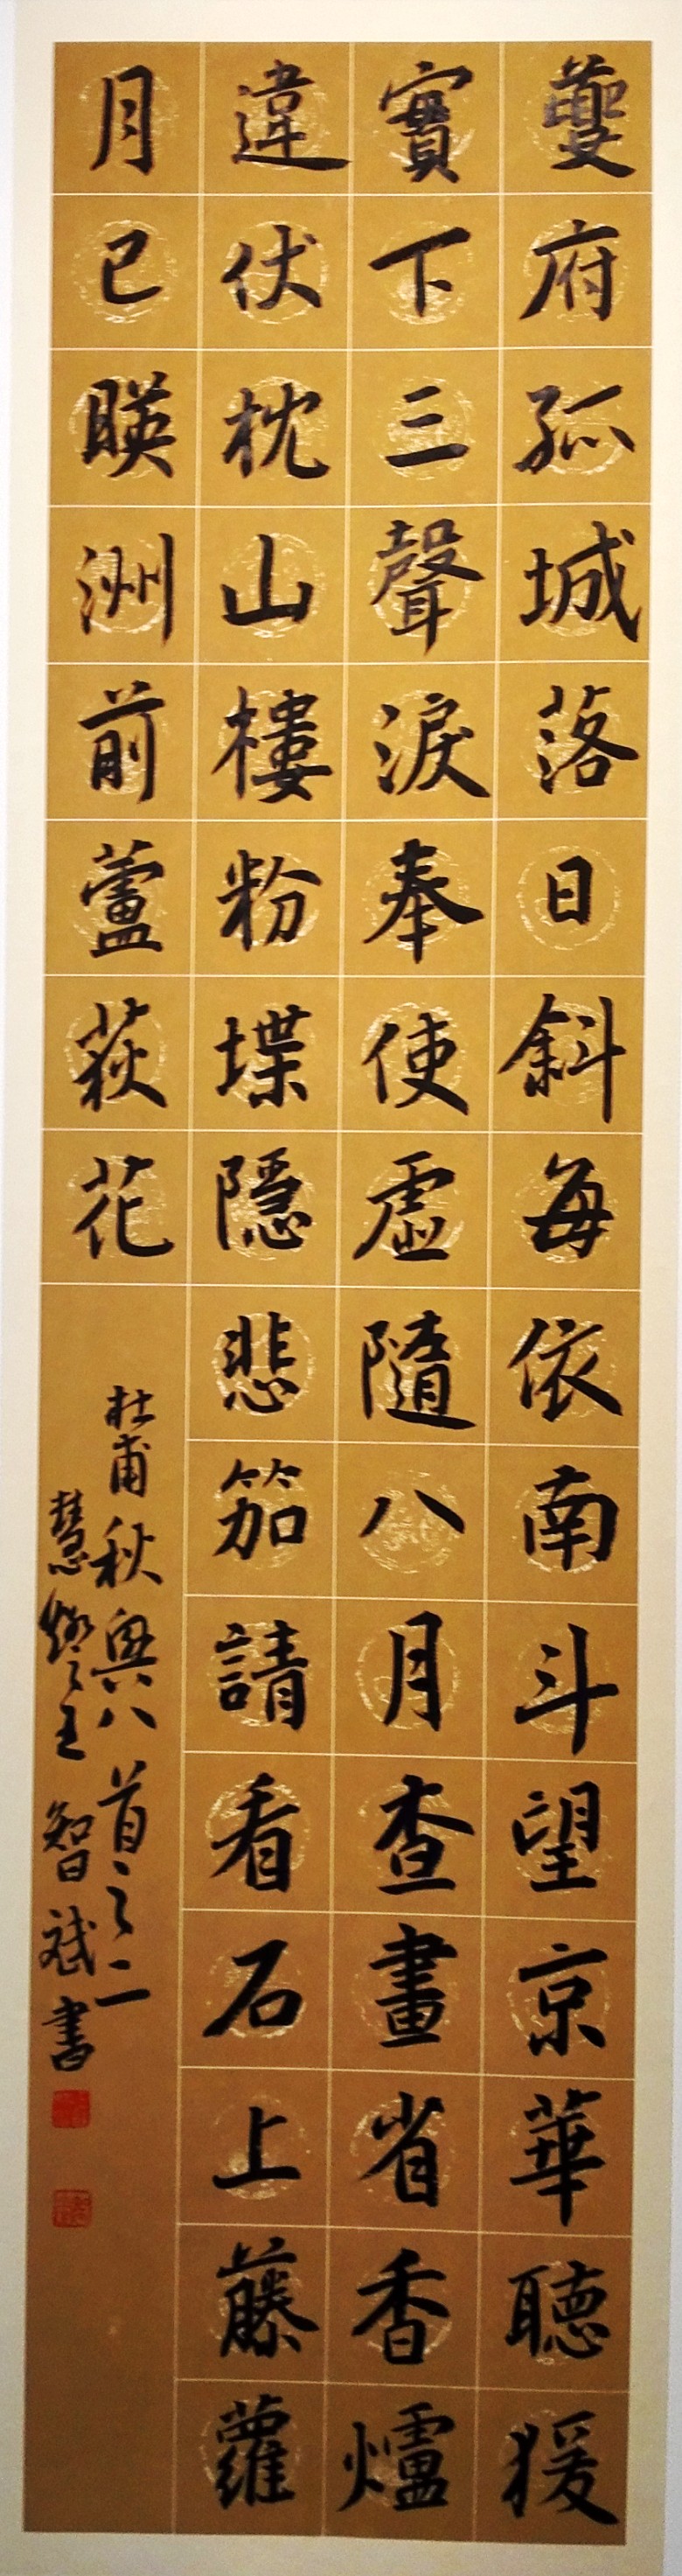 夔府孤城落日斜每依南斗望京華聽猨
實下三聲淚奉使虛隨八月查畫省香爐
違伏枕山樓粉堞隱悲笳請看石上藤蘿
月已暎洲前蘆荻花
杜甫秋興八首之二
慧 王智斌書